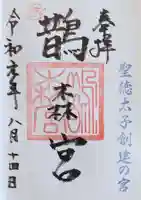 聖徳太子創建の宮
奉拝
鵲森宮
令和元年八月十四日